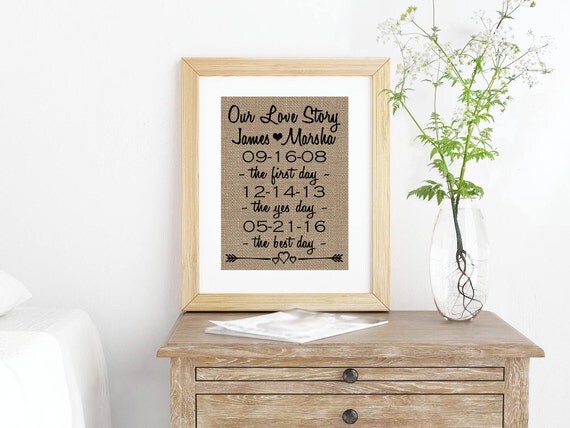 Our Love Story
James Marsha
09-16-08
- the first day -
12-14-13
- the yes day -
05-21-16
- the best day -